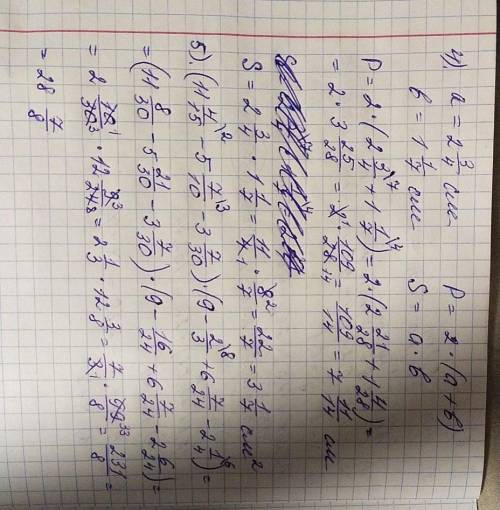 4). a = 2 3/4 см    P = 2·(a+b)
b = 1 1/7 см    S = a·b
P = 2·(2 3/4\7 + 1 1/7\4) = 2·(2 21/28 + 1 4/28) =
= 2·3 25/28 = 2¹·109/28₁₄ = 109/14 = 7 11/14 см
S = 2 3/4 · 1 1/7 = 11/4₁ · 8²/7 = 22/7 = 3 1/7 см²
5). (11 4/15\2 − 5 7/10\3 − 3 7/30)·(9 − 2/3\8 + 6 7/24 − 2 1/4\6) =
= (11 8/30 − 5 21/30 − 3 7/30)·(9 − 16/24 + 6 7/24 − 2 6/24) =
= 2 10¹/30₃ · 12 9³/24₈ = 2 1/3 · 12 3/8 = 7/3₁ · 99³³/8 = 231/8 =
= 28 7/8